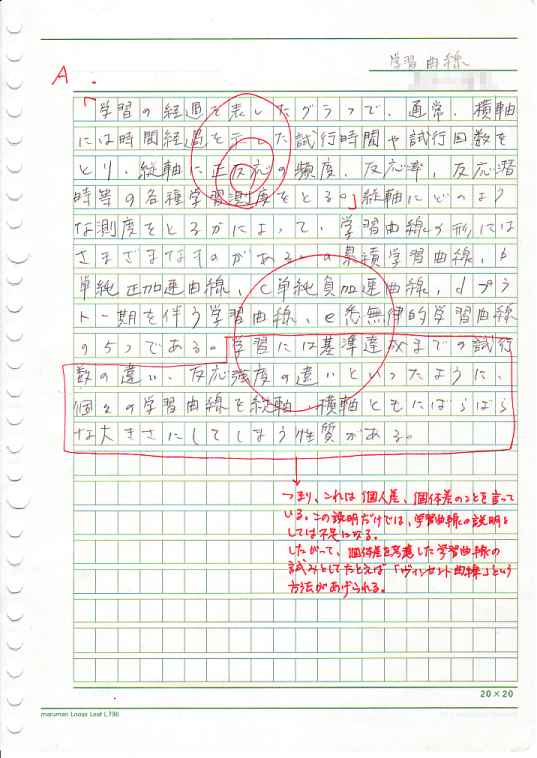 学習曲線
A
「学習の経過を表したグラフで、通常、横軸
には時間経過を示した試行時間や試行回数を
とり、縦軸に正反応の頻度、反応率、反応潜
時等の各種学習測度をとる。」縦軸にどのよう
な測度をとるかによって、学習曲線の形には
さまざまなものがある。a累積学習曲線、b
単純正加速曲線、c単純負加速曲線、dプラ
トー期を伴う学習曲線、e悉無律的学習曲線
の5つである。学習には基準達成までの試行
数の違い、反応強度の違いといったように、
個々の学習曲線を縦軸、横軸ともにばらばら
な大きさにしてしまう性質がある。
つまり、これは個人差、個体差のことを言って
いる。この説明だけでは、学習曲線の説明と
しては不足になる。
したがって、個体差を考慮した学習曲線の
試みとしてたとえば「ヴィンセント曲線」という
方法があげられる。
20×20
maruman Loose Leaf L